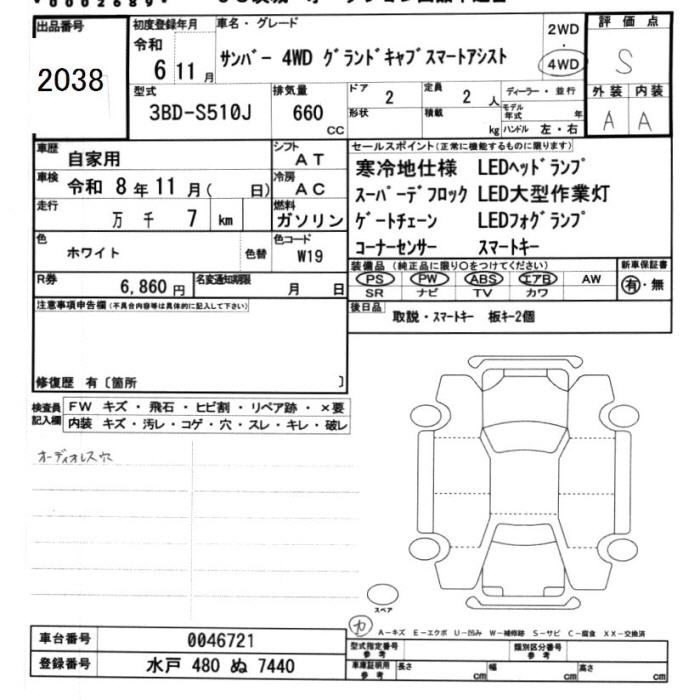 出品番号
2038
初度登録年月
令和
6年11月
車名・グレード
サンバー 4WD グランドキャブスマートアシスト
2WD
・
4WD
評価点
S
外装 内装
A A
型式
3BD-S510J
排気量
660
CC
ドア
2
形状
定員
2人
積載
kg
ディーラー・並行
モデル年式 年
ハンドル 左・右
車歴
自家用
シフト
AT
車検
令和 8年11月( 日)
冷房
AC
走行
万 千 7 km
燃料
ガソリン
色
ホワイト
色替
色コード
W19
R券
6,860円
名変通知期限
月 日
セールスポイント(正常に機能するものに限ります)
寒冷地仕様 LEDヘッドランプ
スーパーデフロック LED大型作業灯
ゲートチェーン LEDフォグランプ
コーナーセンサー スマートキー
装備品(純正品に限り〇をつけてください)
PS PW ABS エアB AW
SR ナビ TV カワ
新車保証書
有・無
後日品
取説・スマートキー 板キー2個
注意事項申告欄(不具合内容等は具体的に記入して下さい)
修復歴 有〔箇所 〕
検査員記入欄
FW キズ・飛石・ヒビ割・リペア跡・×要
内装 キズ・汚レ・コゲ・穴・スレ・キレ・破レ
オーディオレス穴
スペア
カ
A-キズ E-エクボ U-凹み W-補修跡 S-サビ C-腐食 XX-交換済
車台番号
0046721
登録番号
水戸 480 ぬ 7440
型式指定番号
参考
類別区分番号
参考
車庫証明用
参考
長さ cm
幅 cm
高さ cm